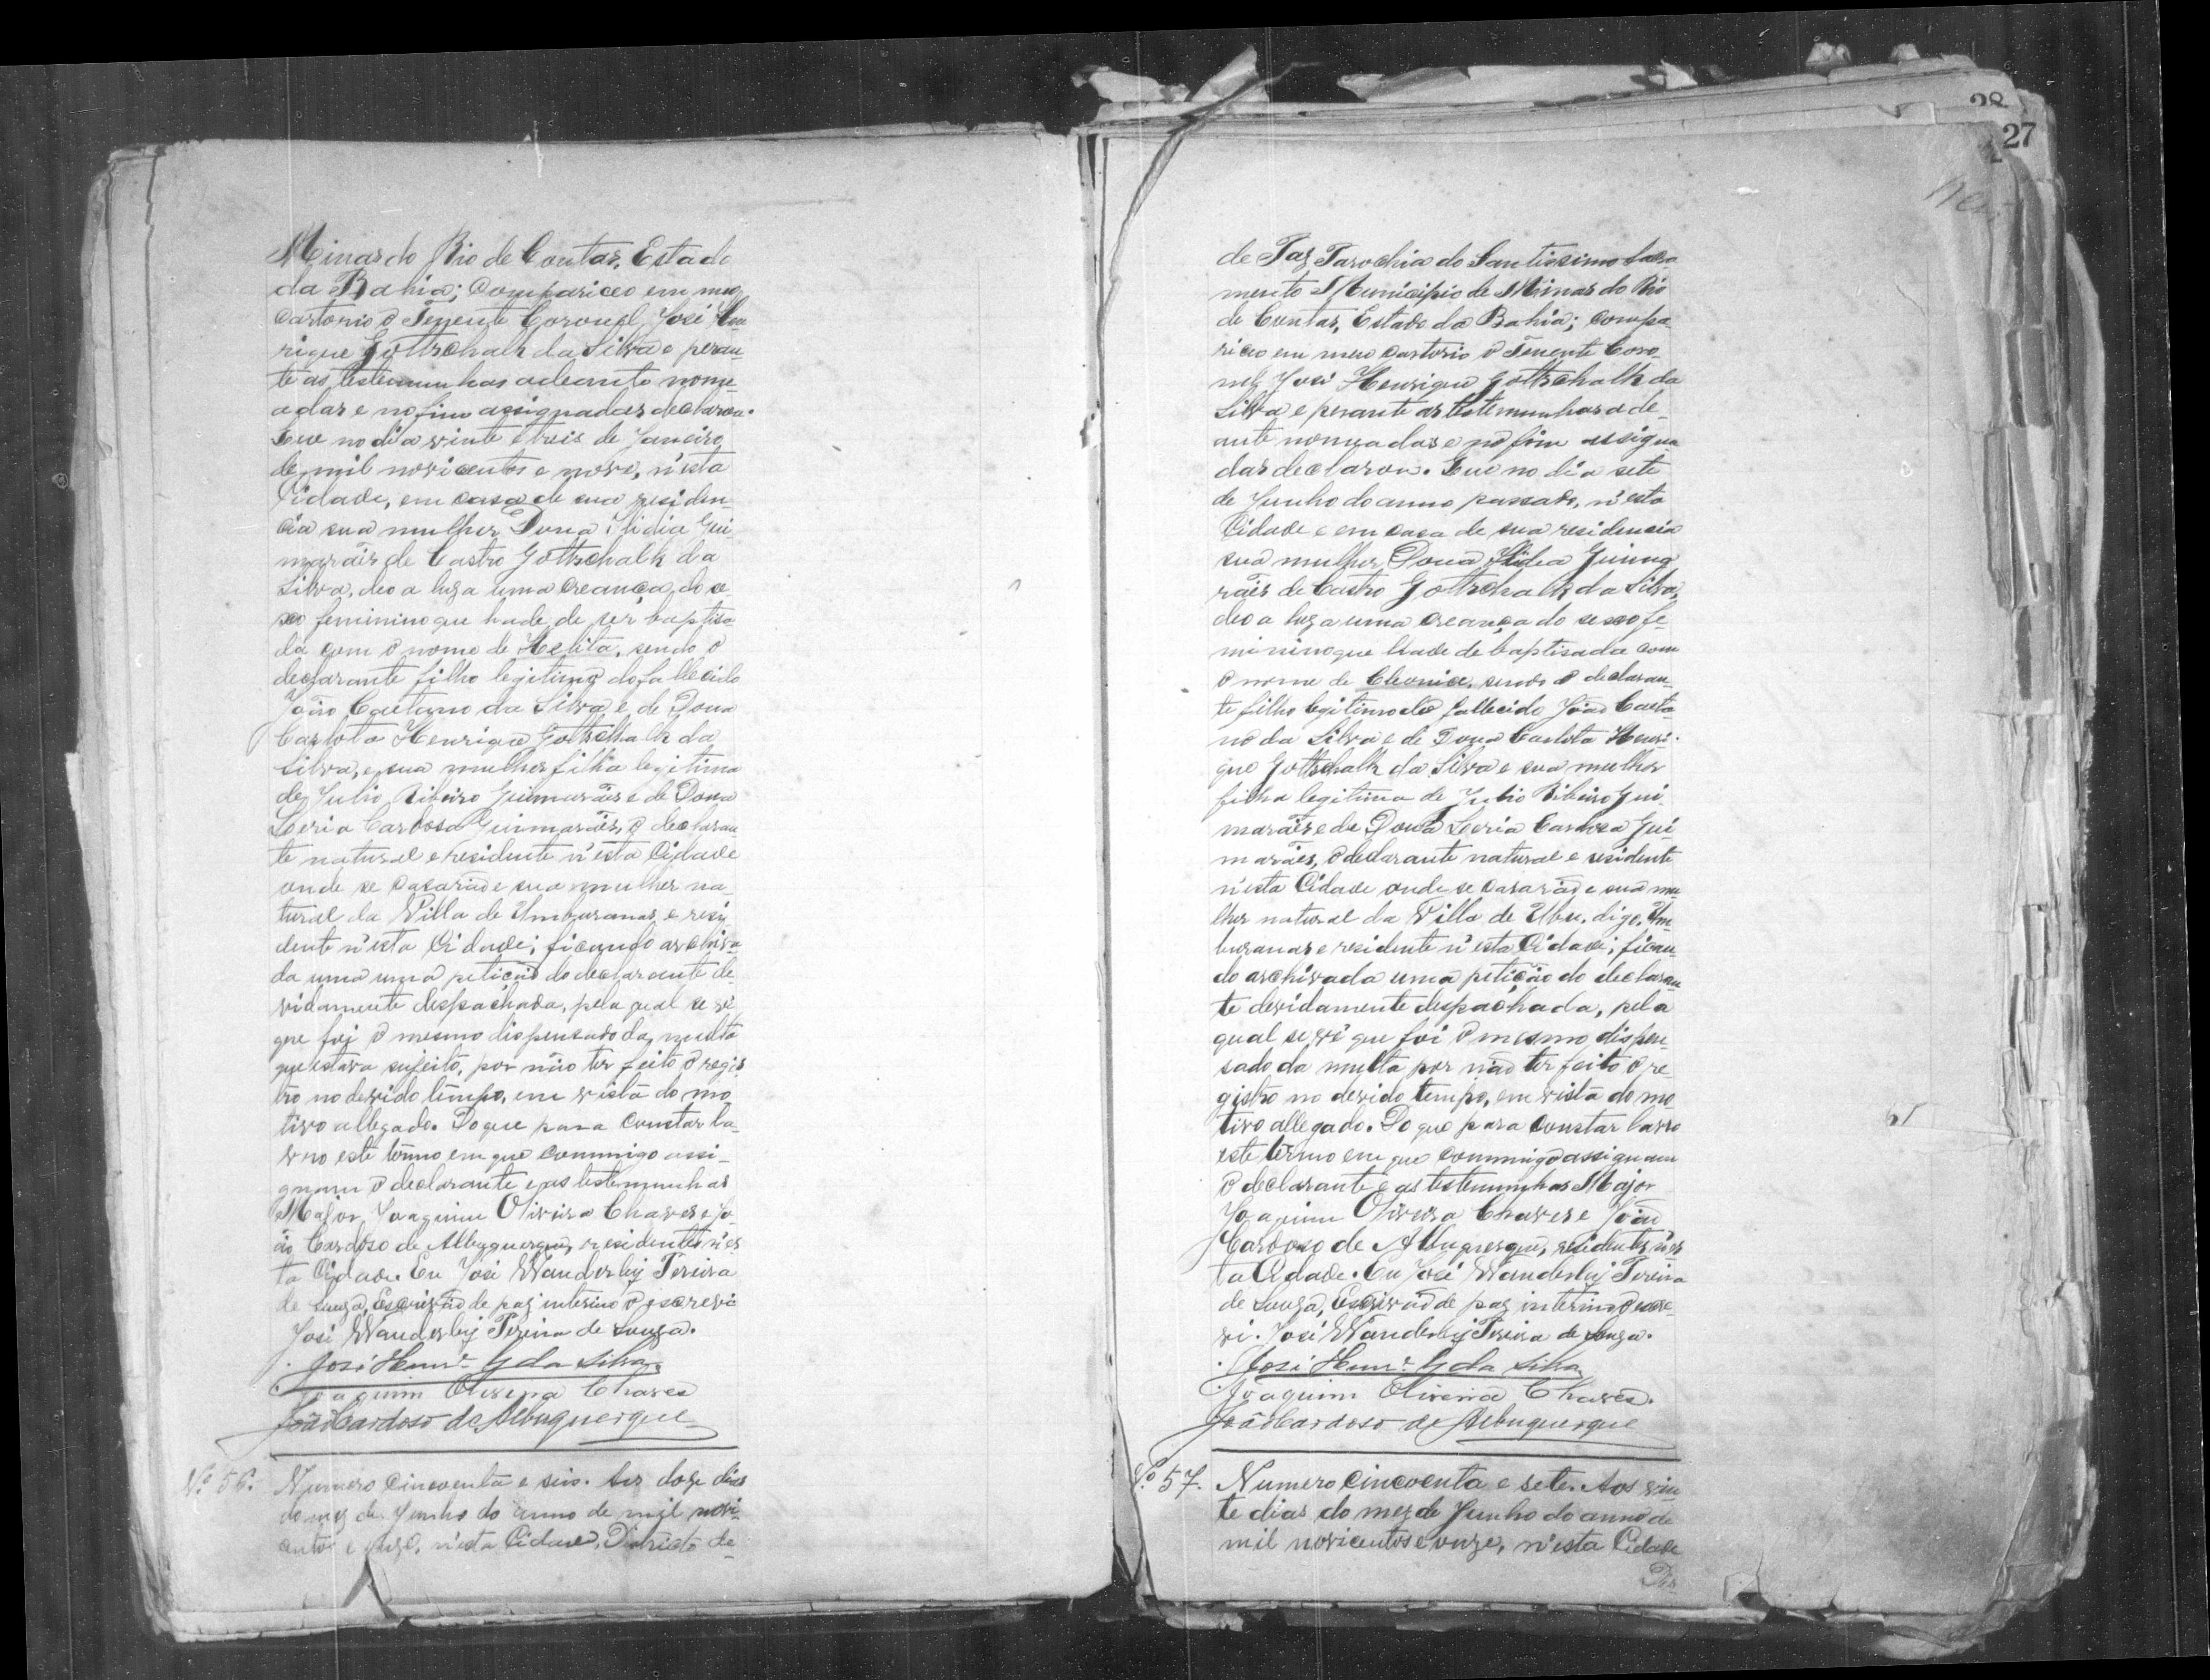 Minas do Rio de Contas, Estado
da Bahia; Compariceo em meu
Cartorio o Tenente Coronel José Hen
rique Gottschalk da Silva e peran-
te as testemunhas adeante nome-
adas e no fim assignadas declarou.
Que no dia vinte e treis de Janeiro
de mil novicentos e nove, n'esta
Cidade, em casa de sua residen-
cia sua mulher Dona Gui
marães de Castro Gottschalk da
Silva, deo a luz a uma creança do se-
xo feminino que hade de ser baptisa-
da com o nome de sendo o
declarante filho legitimo do fallecido
João Caetano da Silva e de Dona
Carlota Henrique Gottschalk da
Silva, e sua mulher filha legitima
de Julio Ribeiro Guimarães e de Dona
Cardosa Guimarães, o declaran-
te natural e residente n'esta Cidade
onde se casarão e sua mulher na-
tural da Villa de Umburanas e resi
dente n'esta Cidade; ficando archiva
da uma uma petição do declarante de-
vidamente despachada, pela qual se vê
que foi o mesmo dispensado da multa
que estava sujeito, por não ter feito o regis
tro no devido tempo, em vista do mo
tivo allegado. Do que para constar la-
vro este termo em que commigo assi-
gnam o declarante e as testemunhas
Major Joaquim Oliveira Chaves e Jo-
ão Cardoso de Albuquerque, residentes n'es
ta Cidade. Eu José Wanderley Pereira
de Souza, Escrivão de paz interino o escrevi
José Wanderley Pereira de Souza.
José Henr.e G da Silva
Joaquim Oliveira Chaves
João Cardoso de Albuquerque
N.º 56. Numero cincoenta e seis. Aos doze dias
do mez de Junho do anno de mil novi-
centos e onze, n'esta Cidade, Districto de-
28
27
de Paz Parochia do Santissimo Sacra
mento Municipio de Minas do Rio
de Contas, Estado da Bahia; compa-
riceo em meu cartorio o Tenente Coro-
nel José Henrique Gottschalk da
Silva e perante as testemunhas ade-
ante nomeadas e no fim assigna
das declarou. Que no dia sete
de Junho do anno passado, n'esta
Cidade e em casa de sua residencia
sua mulher Dona Guima
rães de Castro Gottschalk da Silva,
deo a luz a uma creança do sexo fe-
minino que hade de baptisada com
o nome de Cleonice, sendo o declaran-
te filho legitimo do fallecido João Caeta-
no da Silva e de Dona Carlota Henri-
que Gottschalk da Silva e sua mulher
filha legitima de Julio Ribeiro Gui-
marães e de Dona Cardosa Gui-
marães, o declarante natural e residente
n'esta Cidade onde se casarão e sua mu
lher natural da Villa de Ubu, digo, Um
buranas e residente n'esta Cidade; fican-
do archivada uma petição do declaran
te devidamente despachada, pela
qual se vê que foi o mesmo dispen
sado da multa por não ter feito o re-
gistro no devido tempo, em vista do mo-
tivo allegado. Do que para constar lavro
este termo em que commigo assignam
o declarante e as testemunhas Major
Joaquim Oliveira Chaves e João
Cardoso de Albuquerque, residentes n'es
ta Cidade. Eu José Wanderley Pereira
de Souza, Escrivão de paz interino o escre-
vi. José Wanderley Pereira de Souza.
José Henr.e G da Silva
Joaquim Oliveira Chaves.
João Cardoso de Albuquerque
N.º 57. Numero cincoenta e sete. Aos vin
te dias do mez de Junho do anno de
mil novicentos e onze, n'esta Cidade
Dis-